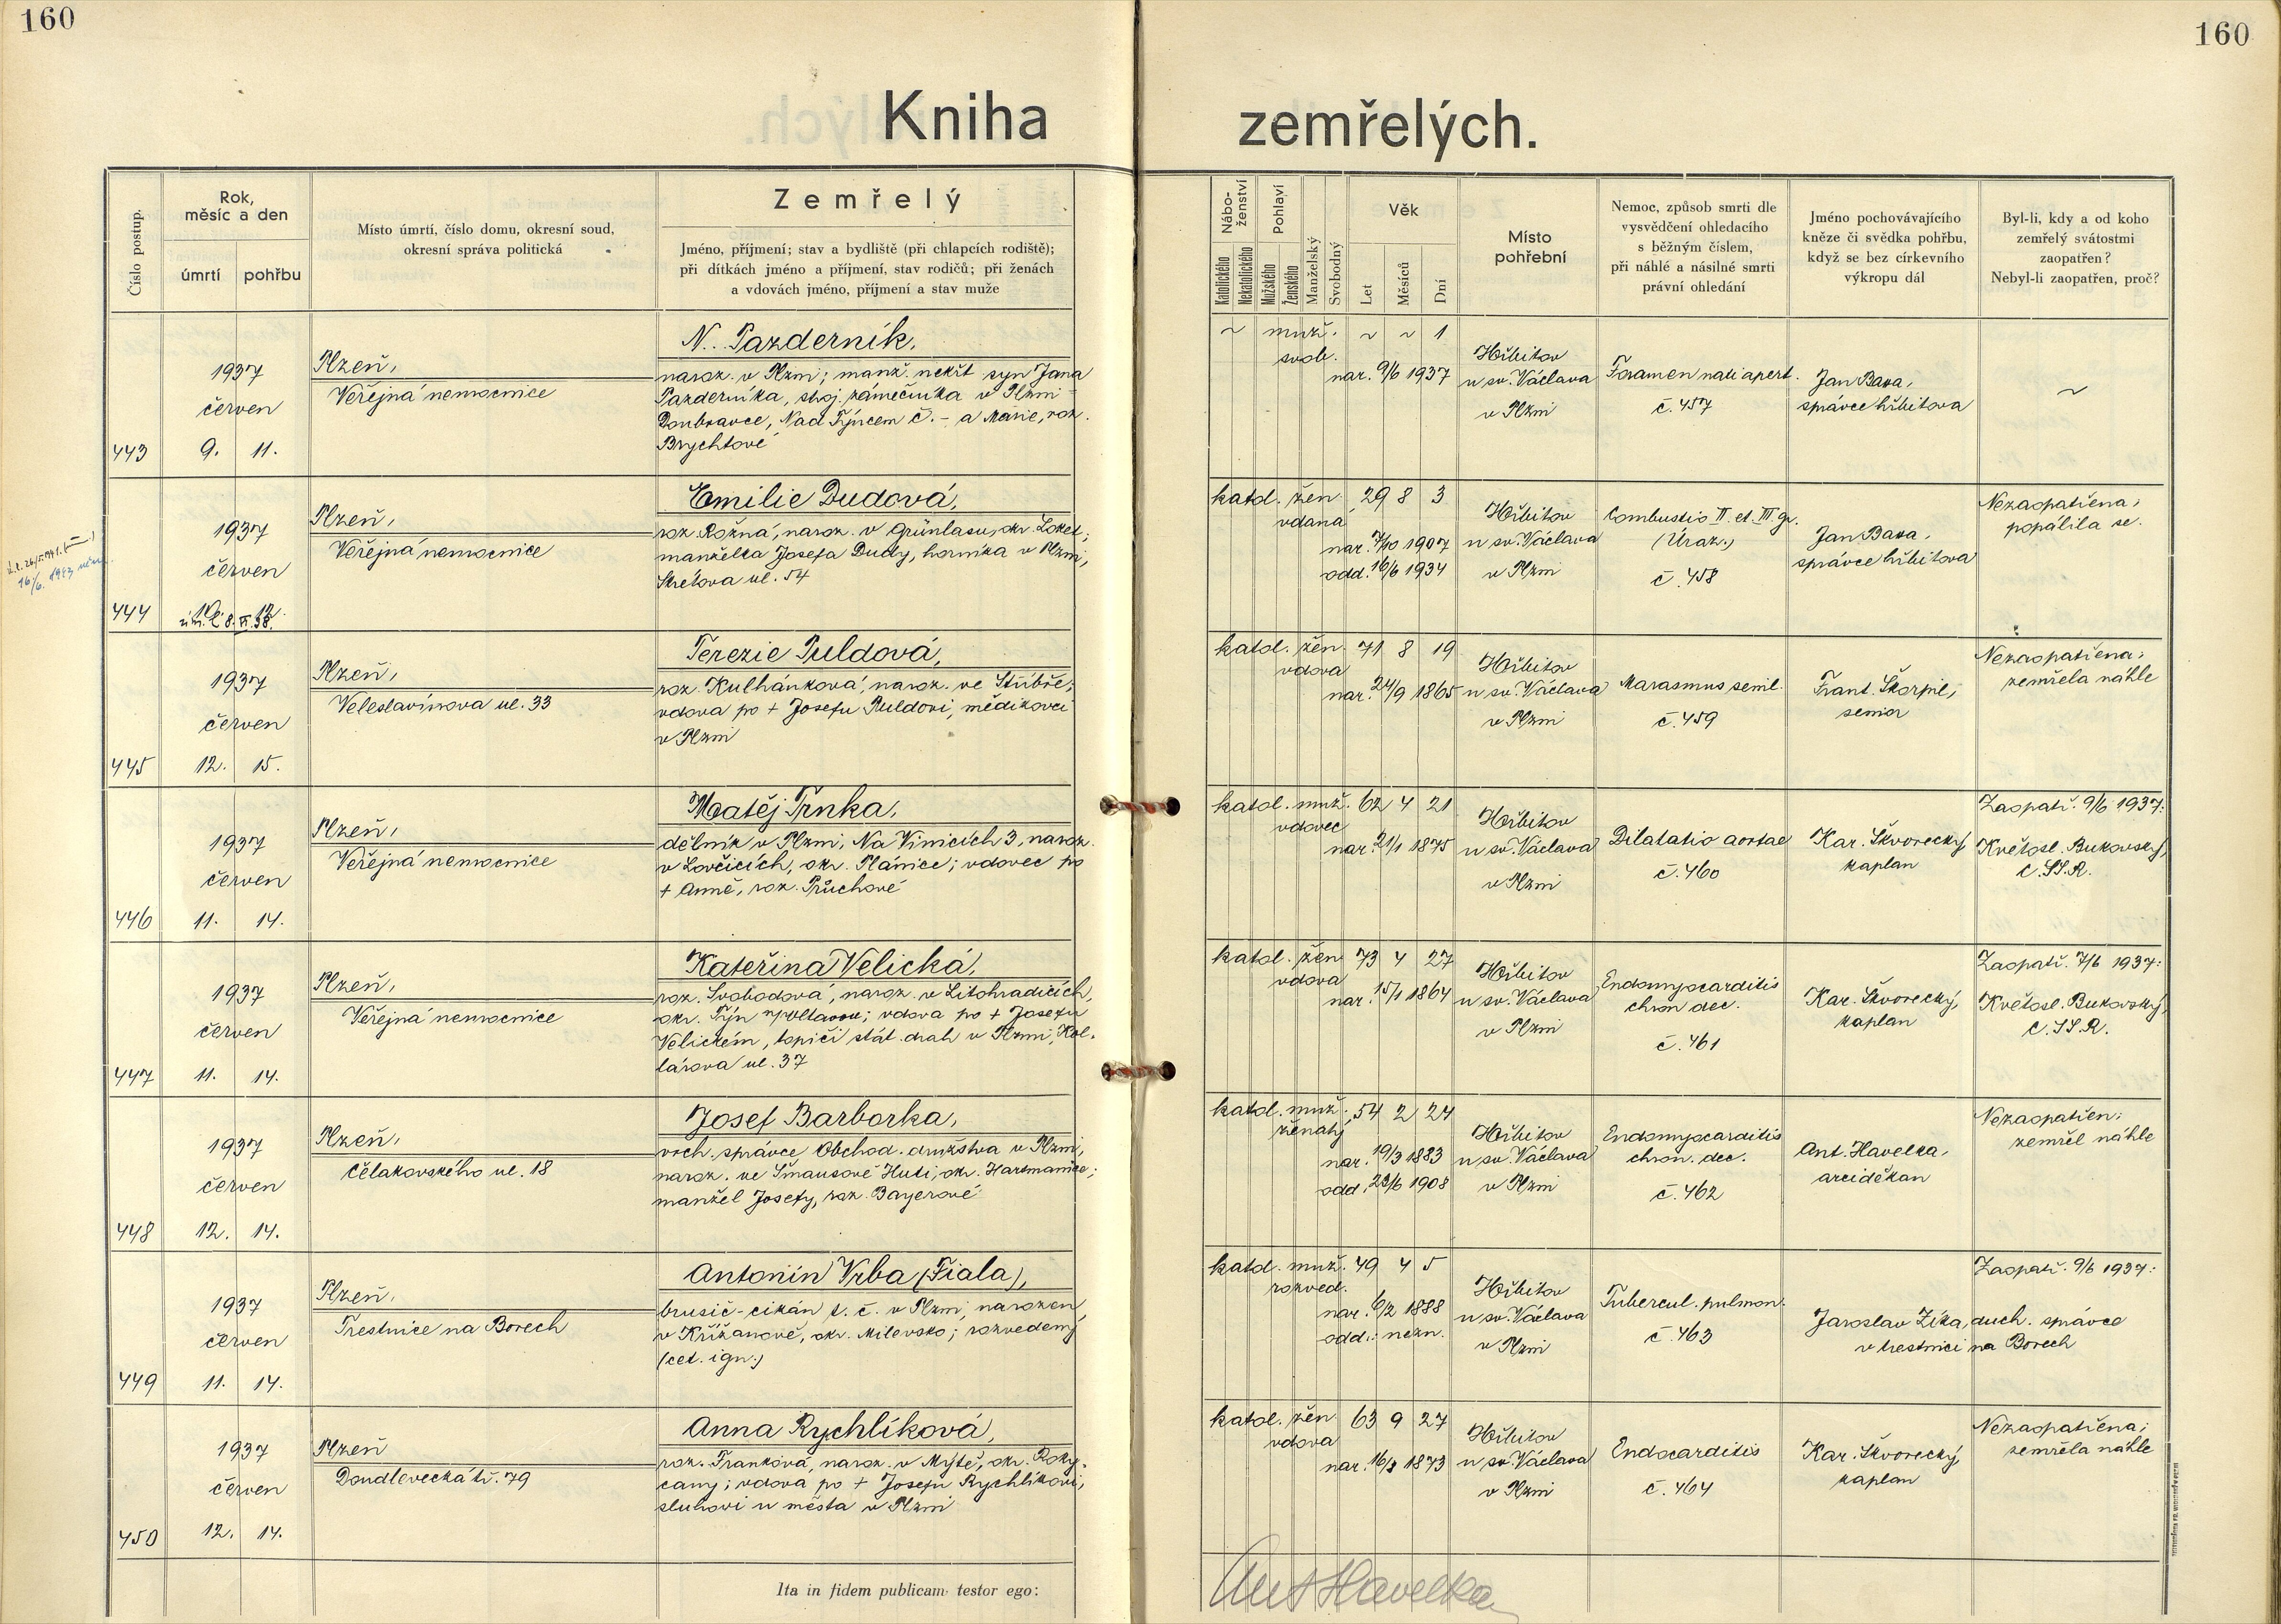 160
160
Kniha zemřelých.
Číslo postup.
Rok,
měsíc a den
úmrtí
pohřbu
Místo úmrtí, číslo domu, okresní soud,
okresní správa politická
Zemřelý
Jméno, příjmení; stav a bydliště (při chlapcích rodiště);
při dítkách jméno a příjmení, stav rodičů; při ženách
a vdovách jméno, příjmení a stav muže
Nábo-
ženství
Katolického
Nekatolického
Pohlaví
Mužského
Ženského
Manželský
Svobodný
Věk
Let
Měsíců
Dní
Místo
pohřební
Nemoc, způsob smrti dle
vysvědčení ohledacího
s běžným číslem,
při náhlé a násilné smrti
právní ohledání
Jméno pochovávajícího
kněze či svědka pohřbu,
když se bez církevního
výkropu dál
Byl-li, kdy a od koho
zemřelý svátostmi
zaopatřen?
Nebyl-li zaopatřen, proč?
443
1937
červen
9. 11.
Plzeň,
Veřejná nemocnice
N. Pazderník,
naroz. v Plzni; manž. nekřt syn Jana
Pazderníka, stroj. zámečníka v Plzni-
Doubravce, Nad Týncem č. – a Marie, roz.
Brychtové
~ muž. ~ ~ 1
svob.
nar. 9/6 1937
Hřbitov
u sv. Václava
v Plzni
Foramen nati apert.
č. 457
Jan Bava,
správce hřbitova
~
444
1937
červen
10. 12.
Plzeň,
Veřejná nemocnice
Emilie Dudová,
roz. Rožná, naroz. v Grünlasu, okr. Loket;
manželka Josefa Dudy, horníka v Plzni,
Skrétova ul. 54
katol. žen 29 8 3
vdaná
nar. 7/10 1907
odd. 16/6 1934
Hřbitov
u sv. Václava
v Plzni
Combustio II. et. III. gr.
(Úraz.)
č. 458
Jan Bava,
správce hřbitova
Nezaopatřena;
popálila se.
445
1937
červen
12. 15.
Plzeň,
Veleslavínova ul. 33
Terezie Puldová,
roz. Kulhánková, naroz. ve Stříbře;
vdova po + Josefu Puldovi, mědikovci
v Plzni
katol. žen. 71 8 19
vdova
nar. 24/9 1865
Hřbitov
u sv. Václava
v Plzni
Marasmus senil.
č. 459
Frant. Škorpil,
senior
Nezaopatřena;
zemřela náhle
446
1937
červen
11. 14.
Plzeň,
Veřejná nemocnice
Matěj Trnka,
dělník v Plzni, Na Vinicích 3, naroz.
v Lovčicích, okr. Plánice; vdovec po
+ Anně, roz. Průchové
katol. muž. 62 4 21
vdovec
nar. 21/1 1875
Hřbitov
u sv. Václava
v Plzni
Dilatatio aortae
č. 460
Kar. Škvorecký,
kaplan
Zaopatř. 9/6 1937:
Květosl. Bukovský,
C.SS.R.
447
1937
červen
11. 14.
Plzeň,
Veřejná nemocnice
Kateřina Velická,
roz. Svobodová, naroz. v Litohradicích,
okr. Týn n/Vltavou; vdova po + Josefu
Velickém, topiči stát. drah v Plzni, Kol-
lárova ul. 37
katol. žen 73 4 27
vdova
nar. 15/1 1864
Hřbitov
u sv. Václava
v Plzni
Endomyocarditis
chron dec.
č. 461
Kar. Škvorecký,
kaplan
Zaopatř. 7/6 1937:
Květosl. Bukovský,
C.SS.R.
448
1937
červen
12. 14.
Plzeň,
Čelakovského ul. 18
Josef Barborka,
vrch. správce Obchod. družstva v Plzni,
naroz. ve Šmausově Huti, okr. Hartmanice;
manžel Josefy, roz. Bayerové
katol. muž. 54 2 24
ženatý
nar. 19/3 1883
odd. 23/6 1908
Hřbitov
u sv. Václava
v Plzni
Endomyocarditis
chron. dec.
č. 462
Ant. Havelka,
arciděkan
Nezaopatřen;
zemřel náhle
449
1937
červen
11. 14.
Plzeň,
Trestnice na Borech
Antonín Vrba (Fiala),
brusič-cikán t. č. v Plzni, narozen
v Křižanově, okr. Milevsko; rozvedený
(cet. ign.)
katol. muž. 49 4 5
rozved.
nar. 6/2 1888
odd.: nezn.
Hřbitov
u sv. Václava
v Plzni
Tubercul. pulmon.
č. 463
Zaopatř. 9/6 1937:
Jaroslav Zíka, duch. správce
v trestnici na Borech
450
1937
červen
12. 14.
Plzeň
Doudlevecká tř. 79
Anna Rychlíková,
roz. Franková, naroz. v Mýtě, okr. Roky-
cany; vdova po + Josefu Rychlíkovi,
sluhovi u města v Plzni
katol. žen 63 9 27
vdova
nar. 16/8 1873
Hřbitov
u sv. Václava
v Plzni
Endocarditis
č. 464
Kar. Škvorecký,
kaplan
Nezaopatřena;
zemřela náhle
Ita in fidem publicam testor ego:
Ant Havelka